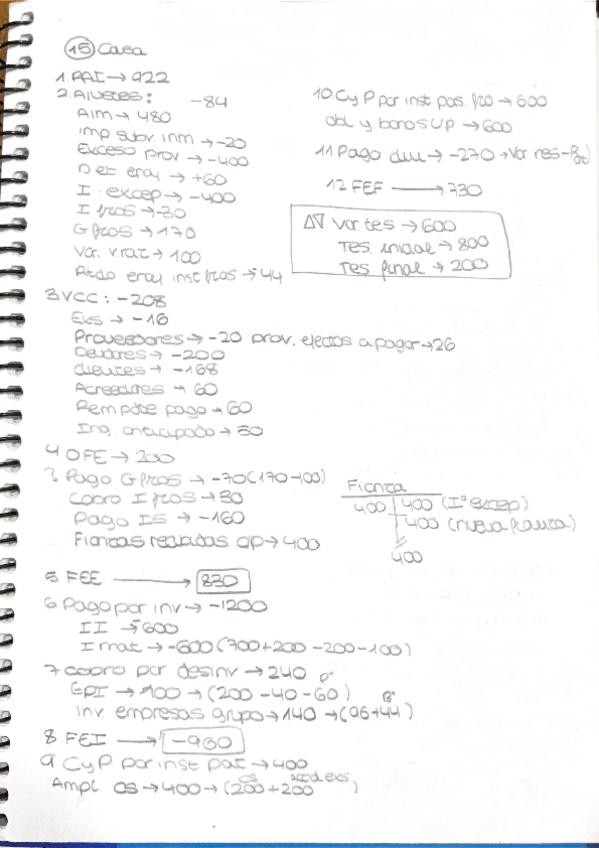 15 Casa
1. RAI → 922
2 Ajustes: -84
AIM → 480
Imp subv inm → -20
Exceso prov → -400
Det enaj → +60
I. excep → -400
I fros → -30
G fros → 170
Var. vraz → 100
Rtdo enaj inst fros → -44
3. VCC: -208
Exs → -16
Proveedores → -20 prov. efectos a pagar → 26
Deudores → -200
clientes → -168
Acreedores → 60
Rem pdte pago → 60
Ing. anticipado → 50
4 OFE → 200
Pago G fros → -70 (170-100)
Cobro I fros → 30
Pago IS → -160
Fianzas recibidas cp → 400
5 FEE → 830
6 Pago por inv → -1200
II → -600
Imat → -600 (700+200 -200 -100)
7 cobro por desinv → 240
EPI → 100 → (200 -40 -60)
inv empresas grupo → 140 → (96+44)
8 FEI → -960
9 CyP por inst pat → 400
Ampl CS → 400 → (200+200)
10 CyP por inst pas. fro → 600
obl y bonos UP → 600
11 Pago div → -270
12 FEF → 730
Var tes → 600
Tes. inicial → 800
Tes final → 200
Fianza
400 400 (Iº excep)
400 (nueva fianza)
400